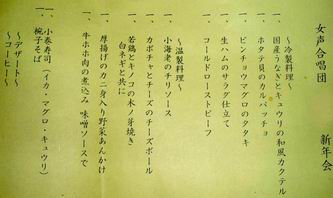 女声合唱団　新年会
～冷製料理～
一、国産うなぎとキュウリの和風カクテル
一、ホタテ貝のカルパッチョ
一、ビンチョウマグロのタタキ
一、生ハムのサラダ仕立て
一、コールドローストビーフ
～温製料理～
一、小海老のチリソース
一、カボチャとチーズのチーズボール
一、若鶏とキノコの木ノ芽焼き
白ネギと共に
一、厚揚げのカニ身入り野菜あんかけ
一、牛ホホ肉の煮込み　味噌ソースで
一、小巻寿司（イカ・マグロ・キュウリ）
一、椀子そば
～デザート～
～コーヒー～